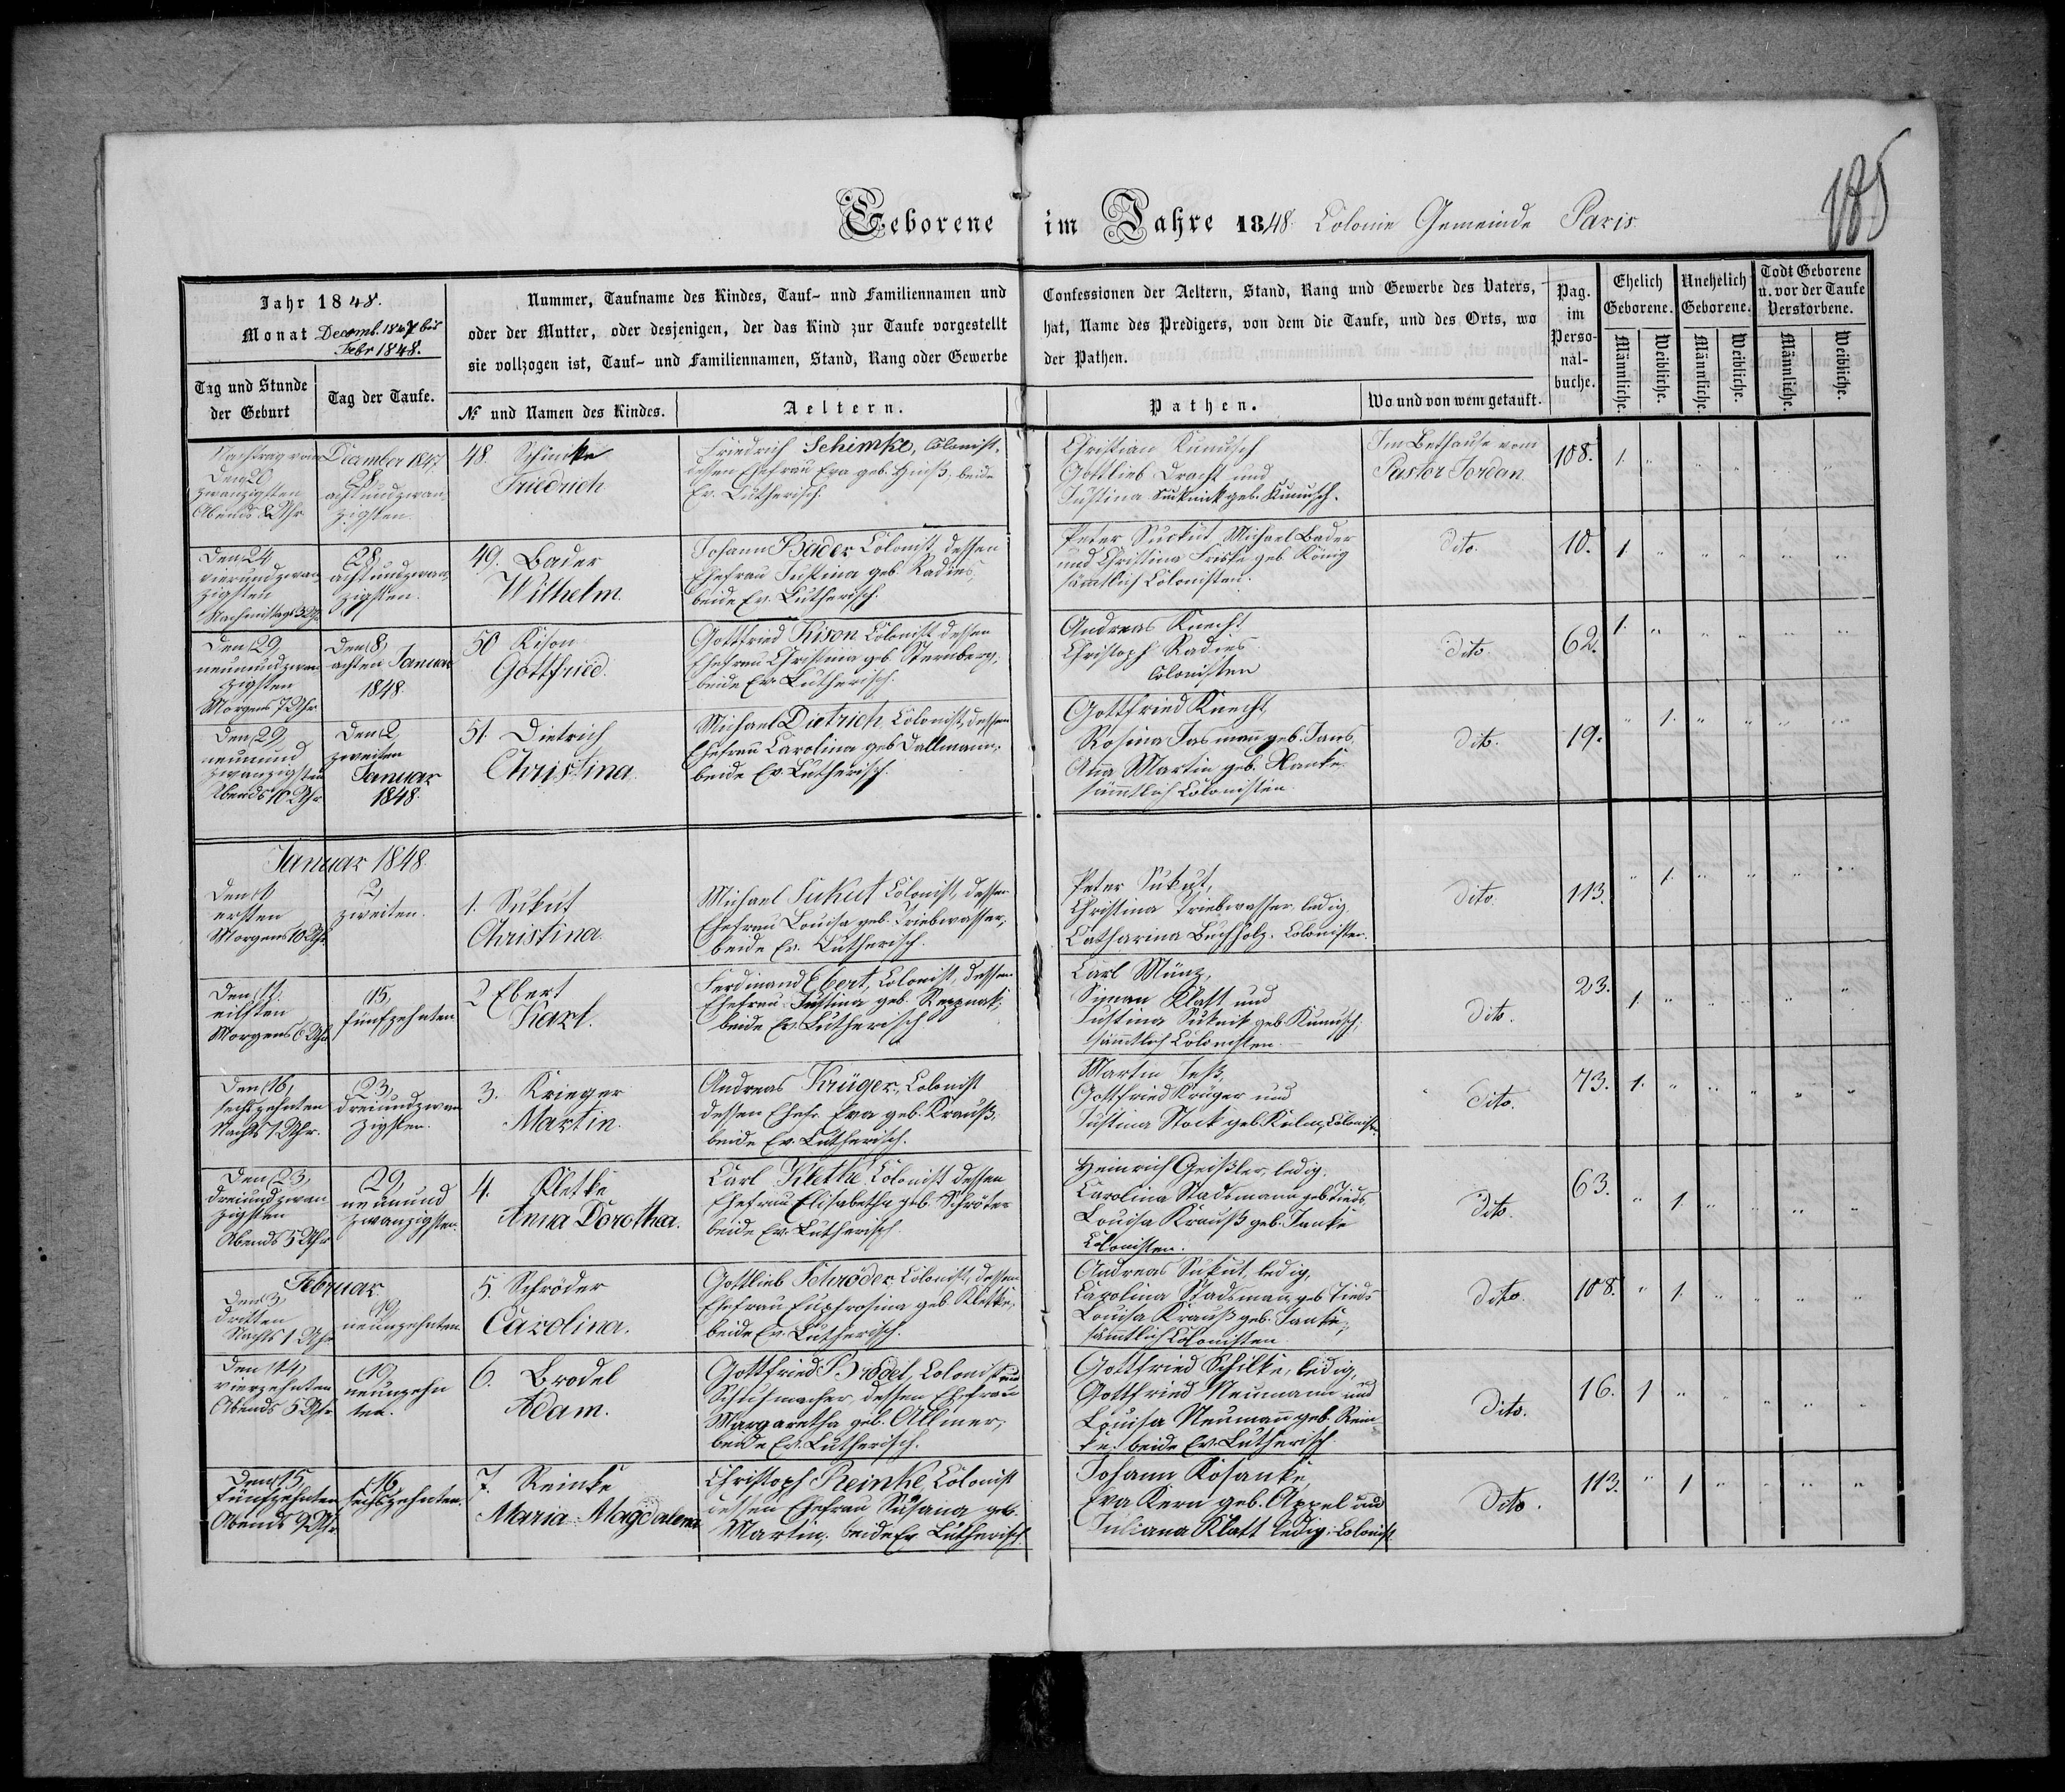 185
Geborene im Jahre 1848. Colonie Gemeinde Paris
Jahr 1848.
Monat Decemb. 1847 bis
Febr 1848.
Tag und Stunde
der Geburt
Tag der Taufe.
Nummer, Taufname des Kindes, Tauf- und Familiennamen und
oder der Mutter, oder desjenigen, der das Kind zur Taufe vorgestellt
sie vollzogen ist, Tauf- und Familiennamen, Stand, Rang oder Gewerbe
№ und Namen des Kindes.
Aeltern.
Confessionen der Aeltern, Stand, Rang und Gewerbe des Vaters,
hat, Name des Predigers, von dem die Taufe, und des Orts, wo
der Pathen.
Pathen.
Wo und von wem getauft.
Pag.
im
Perso-
nal-
buche.
Ehelich
Geborene.
Unehelich
Geborene.
Todt Geborene
u. vor der Taufe
Verstorbene.
Männliche.
Weibliche.
Männliche.
Weibliche.
Männliche.
Weibliche.
Nachtrag vom December 1847
Den 20
zwanzigsten
Abends 8 Uhr
28,
achtundzwan
zigsten.
48. Schimke
Friedrich
Friedrich Schimke, Colonist,
dessen Ehefrau Eva geb. beide
Ev. Lutherisch.
Christian Kumusch
Gottlieb Dracht und
Justina Sucknick geb. Kumusch.
Im Bethause vom
Pastor Jordan
108. 1. " " " " "
Den 24,
vierundzwan
zigsten
Nachmittags 3 Uhr
28,
achtundzwan
zigsten.
49. Bader
Wilhelm.
Johann Bader Colonist, dessen
Ehefrau Justina geb. Radies,
beide Ev. Lutherisch.
Peter Suckut, Michael Bader
und Christina Friske geb. König
sämtlich Colonisten.
Dito.
10. 1 " " " " "
Den 29,
neunundzwan
zigsten
Morgens 7 Uhr
Den 8,
achten Januar
1848.
50 Kison
Gottfried.
Gottfried Kison Colonist dessen
Ehefrau Christina geb. Sternberg,
beide Ev. Lutherisch.
Andreas Knecht
Christoph Radies
Colonisten
Dito.
62. 1. " " " " "
Den 29,
neunund
zwanzigsten
Abends 10 Uhr
Den 2,
zweiten
Januar
1848.
51. Dietrich
Christina.
Michael Dietrich Colonist, dessen
Ehefrau Carolina geb. Dallmann;
beide Ev. Lutherisch.
Gottfried Knecht,
Rosina Jasman geb. Jans,
Ana Martin geb. Hanke
sämmtlich Colonisten.
Dito.
19. " 1. " " " "
Januar 1848.
Den 1,
ersten
Morgens 10 Uhr
2,
zweiten.
1. Sukut
Christina.
Michael Sukut Colonist, dessen
Ehefrau Louisa geb. Triebwasser;
beide Ev. Lutherisch.
Peter Sukut,
Christina Triebwasser, ledig
Catharina Buchholz. Colonisten.
Dito.
113. " 1. " " " "
Den 11.
eilften
Morgens 6 Uhr
15,
fünfzehnten
2 Ebert
Karl.
Ferdinand Ebert, Colonist, dessen
Ehefrau Justina geb.
beide Ev. Lutherisch
Carl Münz,
Siman Klatt und
Justina Suknik geb. Kumusch;
sämtlich Colonisten.
Dito.
23. 1. " " " " "
Den 16,
sechszehnten
Nachts 1 Uhr.
23,
dreiundzwan
zigsten.
3. Krieger
Martin.
Andreas Krüger, Colonist
dessen Ehefr. Eva geb. Krauß,
beide Ev. Lutherisch.
Martin Jeß,
Gottfried Krüger und
Justina Stock geb. Kulm, Colonisten
Dito.
73. 1. " " " " "
Den 23,
dreiundzwan
zigsten
Abends 5 Uhr
29,
neunund
zwanzigsten.
4. Kletke
Anna Dorothea.
Carl Kletke Colonist dessen
Ehefrau Elisabetha geb. Schröter
beide Ev. Lutherisch.
Heinrich Geißler, ledig,
Carolina Stadsmann geb. Tieds,
Louisa Krauß geb. Janke
Colonisten.
Dito.
63. " 1. " " " "
Februar.
Den 3,
dritten
Nachts 1 Uhr
19,
neunzehnten
5. Schröder
Carolina.
Gottlieb Schröder, Colonist, dessen
Ehefrau Euphrosina geb. Kletke,
beide Ev. Lutherisch.
Andreas Sukut, ledig,
Carolina Stadsman geb. Tieds
Louisa Krauß geb. Janke;
sämtlich Colonisten
Dito.
108. " 1. " " " "
Den 14,
vierzehnten
Abends 5 Uhr
19,
neunzehn
ten.
6. Brodel
Adam.
Gottfried Brodel, Colonist und
Schuhmacher, dessen Ehefrau
Margaretha geb. Allmer;
beide Ev. Lutherisch.
Gottfried Schilke, ledig,
Gottfried Neumann und
Louisa Neuman geb. Rein
ke; beide Ev. Lutherisch.
Dito.
16. 1 " " " " "
Den 15,
fünfzehnten
Abends 9 Uhr
16,
sechszehnten.
7. Reinke
Maria Magdalena
Christoph Reinke, Colonist
dessen Ehefrau Susana geb.
Martin; beide Ev. Lutherisch.
Johann Kosanke,
Eva Kern geb. Appel und
Juliana Klatt ledig: Colonist.
Dito.
113. " 1 " " " "